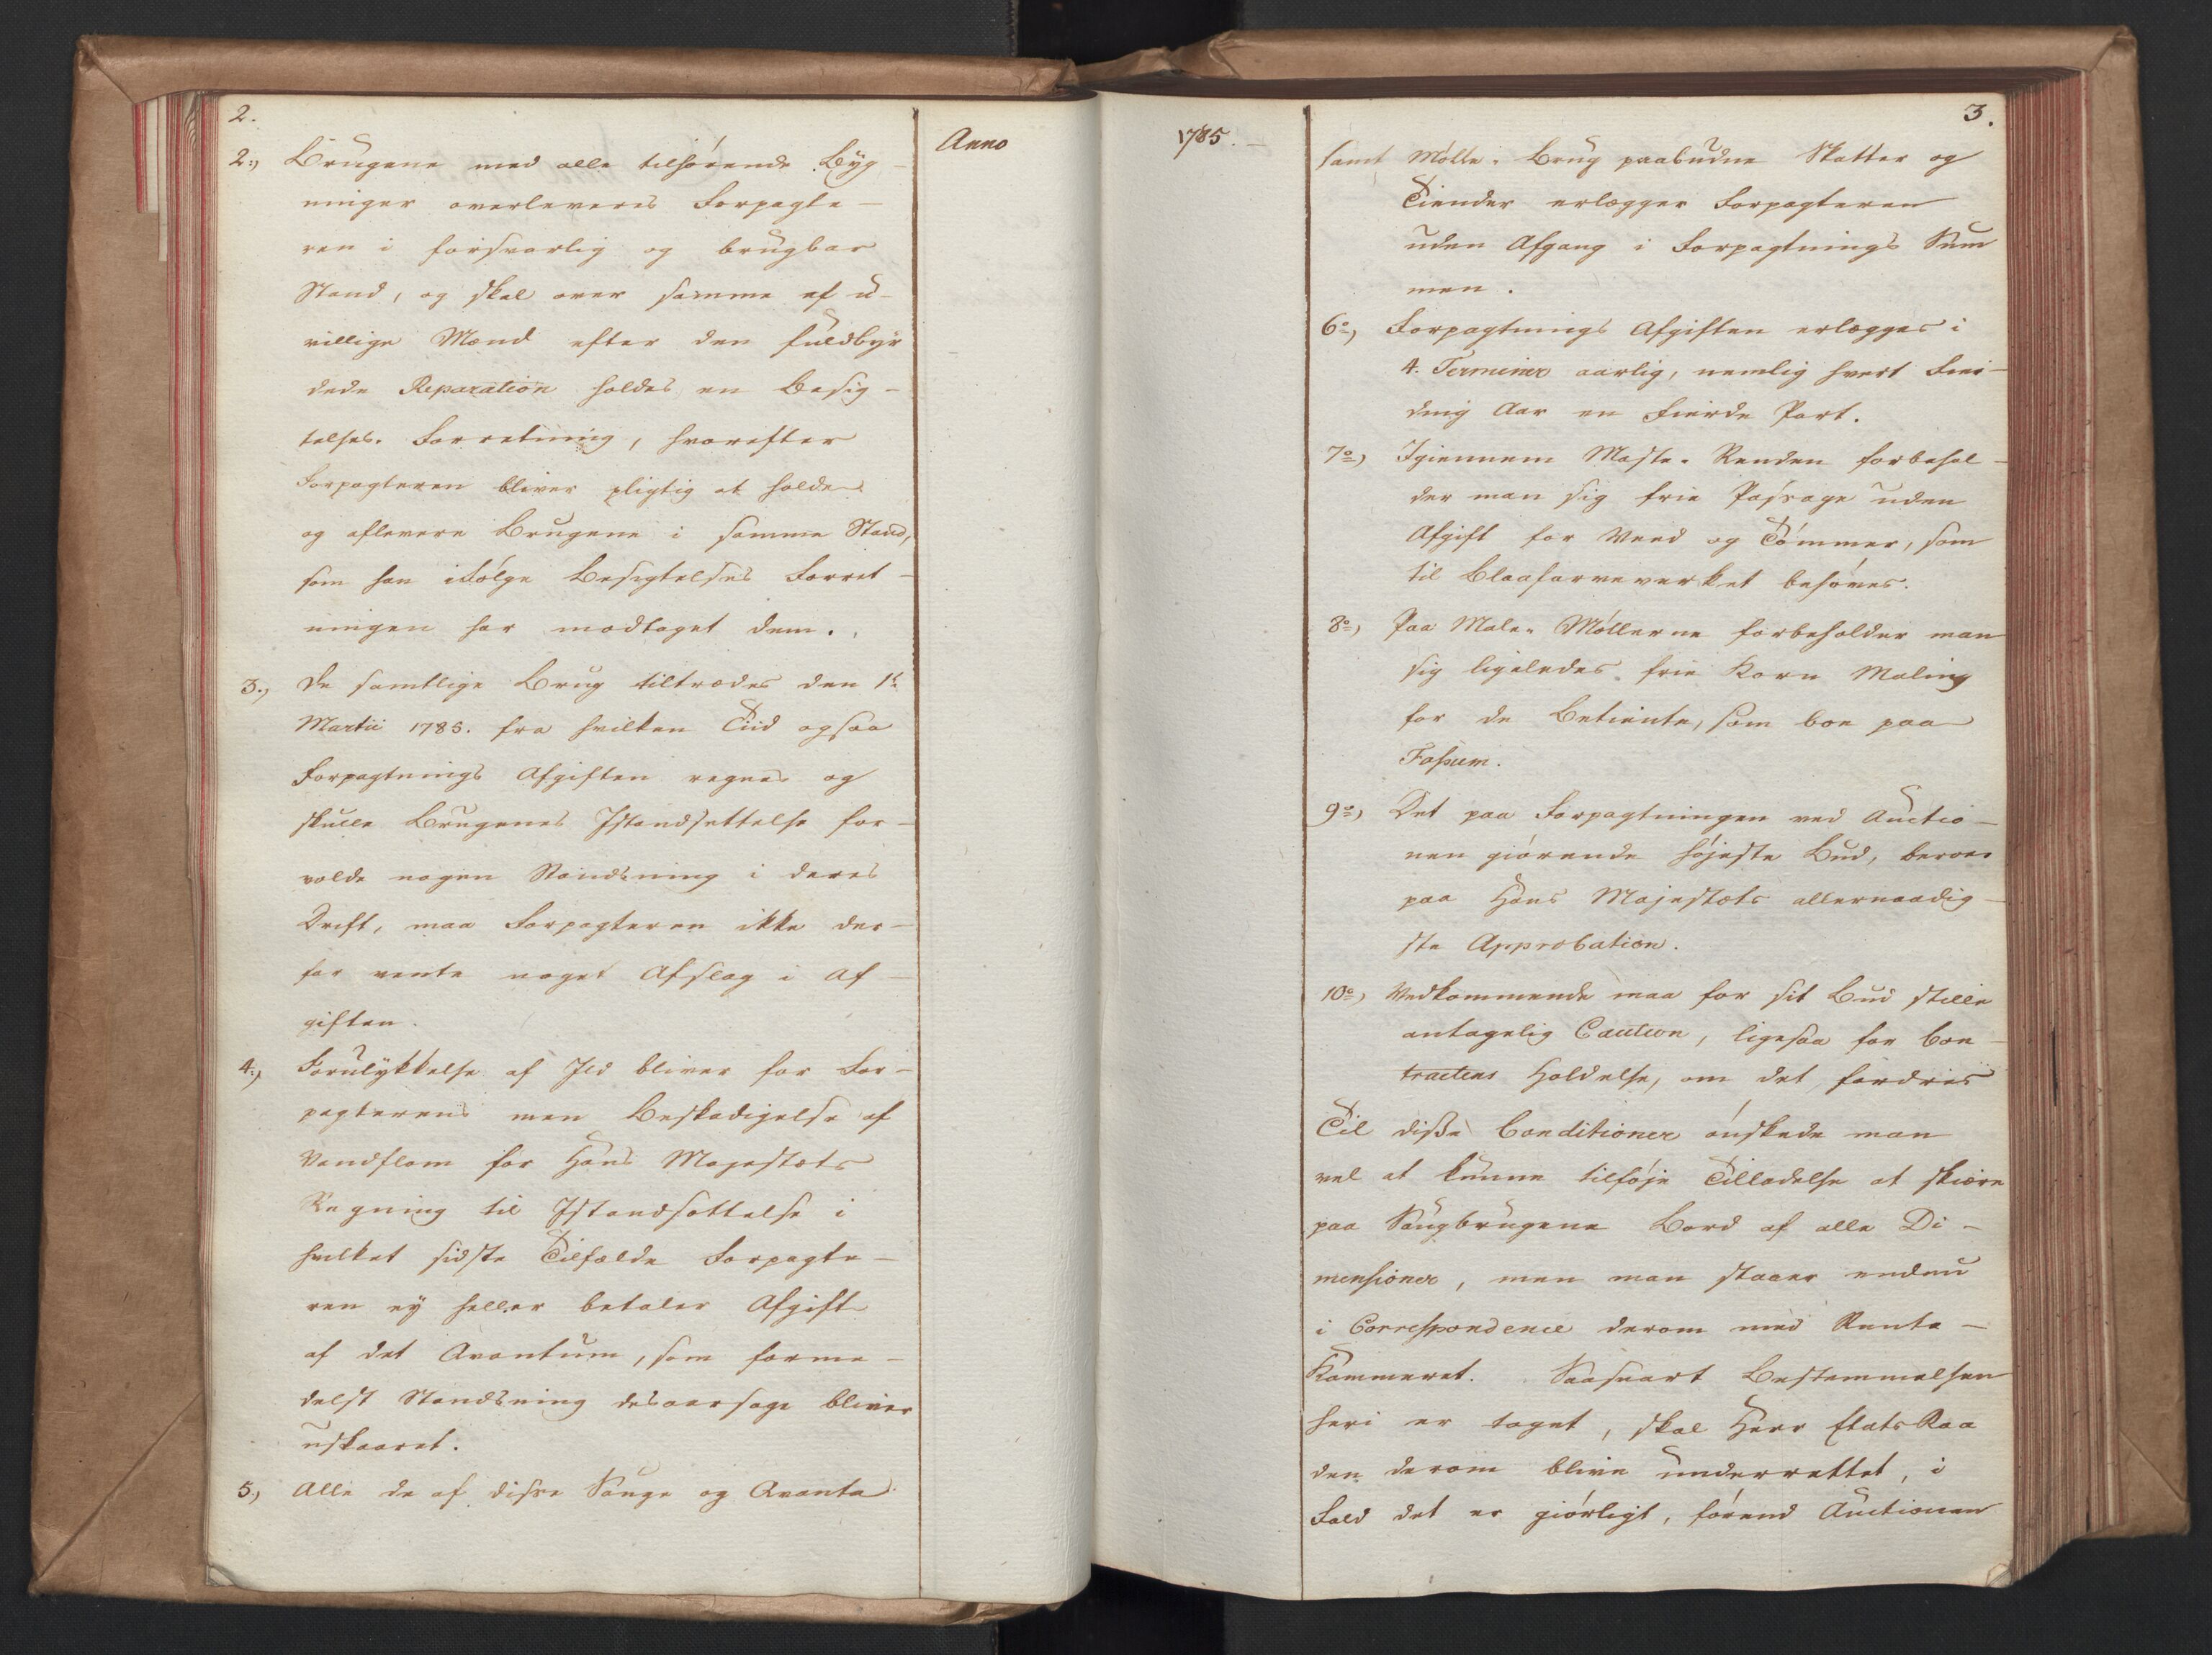 2.
Anno
2.) Brugene med alle tilhørende Byg-
ninger overleveres Forpagte-
ren i forsvarlig og brugbar
Stand, og skal over samme af u-
villige Mænd efter den fuldbyr
dede Reparation holdes en Besig-
telses-Forretning, hvorefter
Forpagteren bliver pligtig at holde
og aflevere Brugene i samme Stand,
som han ifølge Besigtelses Forret-
ningen har modtaget dem.
3.) De samtlige Brug tiltrædes den 1t
Martii 1785. fra hvilken Tiid ogsaa
Forpagtnings Afgiften regnes og
skulle Brugenes Istandsettelse for-
volde nogen Standsning i deres
Drift, maa Forpagteren ikke der-
for vente noget Afslag i Af-
giften.
4.) Forulykkelse af Ild bliver for For-
pagterens men Beskadigelse af
Vandflom for Hans Majestæts
Regning til Istandsættelse i
hvilket sidste Tilfælde Forpagte-
ren ey heller betaler Afgift
af det Qvantum, som forme-
delst Standsning desaarsage bliver
uskaaret.
5.) Alle de af disse Sauge og Qvanta
1785.
3.
samt Mølle-Brug paabudne Skatter og
Tiender erlægger Forpagteren
uden Afgang i Forpagtnings Sum
men.
6o) Forpagtnings Afgiften erlægges i
4. Terminer aarlig, nemlig hvert Fier-
ding Aar en Fierde Part.
7o) Igiennem Maste-Renden forbehol-
der man sig frie Passage uden
Afgift for Veed og Tømmer, som
til Blaafarveverket behøves.
8o) Paa Male-Møllerne forbeholder man
sig ligeledes frie Korn Maling
for de Betiente, som boe paa
Fossum.
9o) Det paa Forpagtningen ved Auctio-
nen giørende høieste Bud, beroer
paa Hans Majestæts allernaadig-
ste Approbation.
10o) Vedkommende maa for sit Bud stille
antagelig Caution, ligesaa for Con-
tractens Holdelse, om det fordres
Til disse Conditioner ønskede man
vel at kunne tilføje Tilladelse at skiære
paa Saugbrugene Bord af alle Di-
mensioner, men man staaer endnu
i Correspondence derom med Rente-
Kammeret. Saasnart Bestemmelsen
heri er taget, skal Herr EtatsRaa
den derom blive underrettet, i
Fald det er giørligt, førend Auctionen